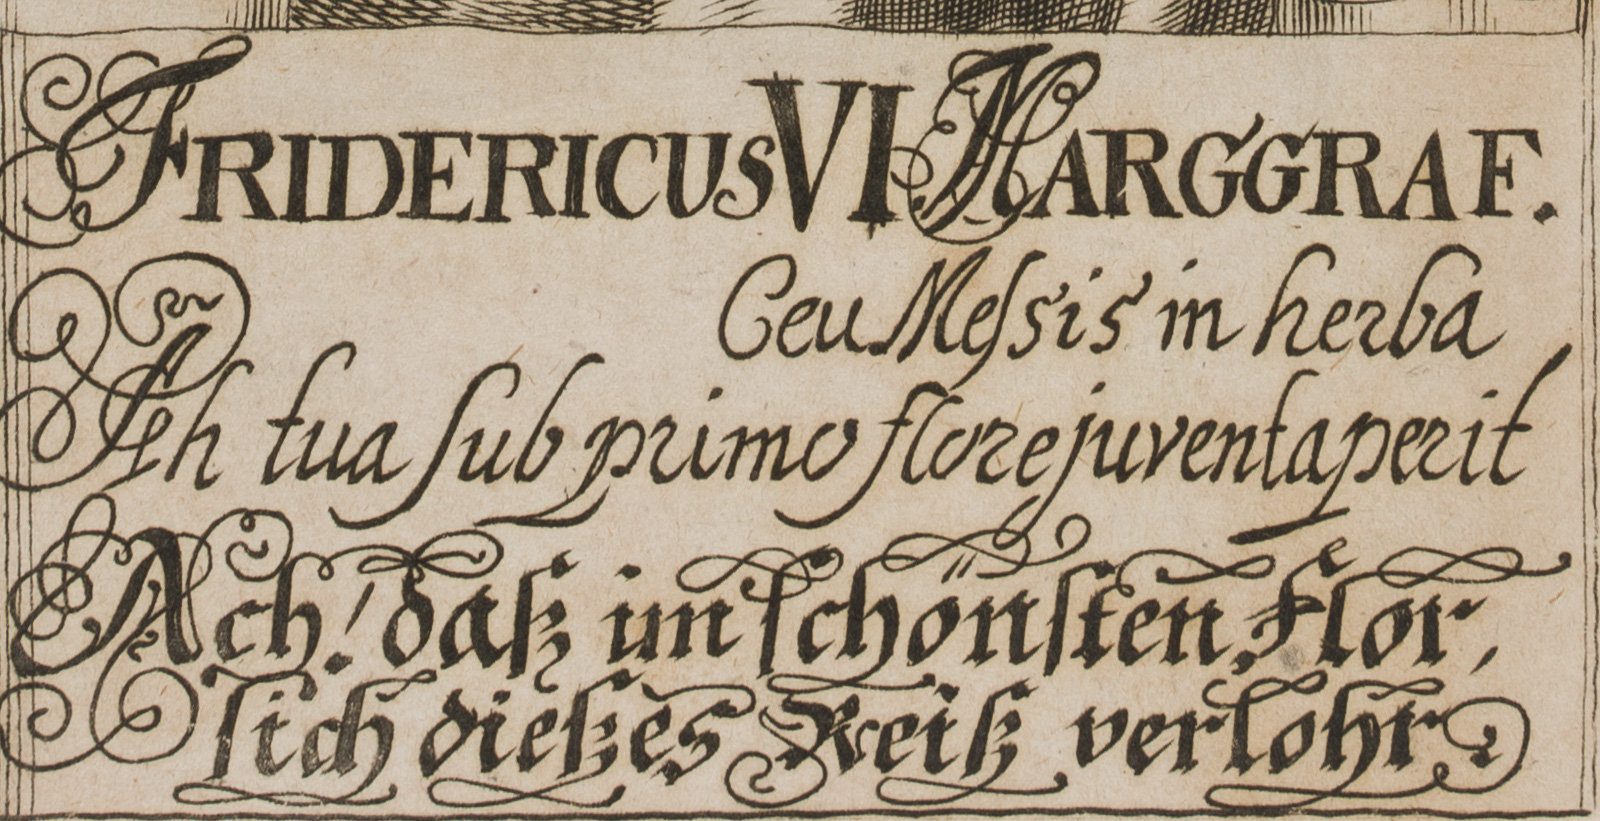 FRIDERICUS VI MARGGRAF.
Ceu Meſsis in herba
Ah tua ſub primo flore juventa perit
Ach! daß im ſchönſten Flor,
ſich dießes Reiß verlohr